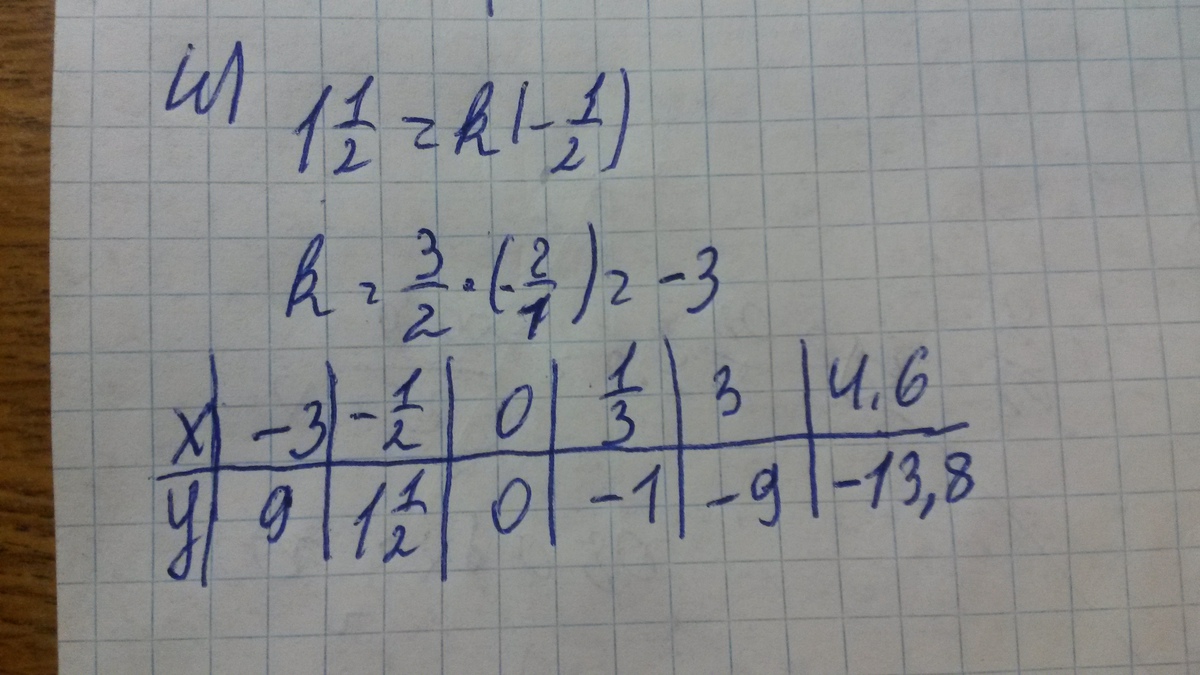 1 1/2 = k(-1/2)
k = 3/2 · (-2/1) = -3
x | -3 | -1/2 | 0 | 1/3 | 3 | 4,6
y | 9 | 1 1/2 | 0 | -1 | -9 | -13,8